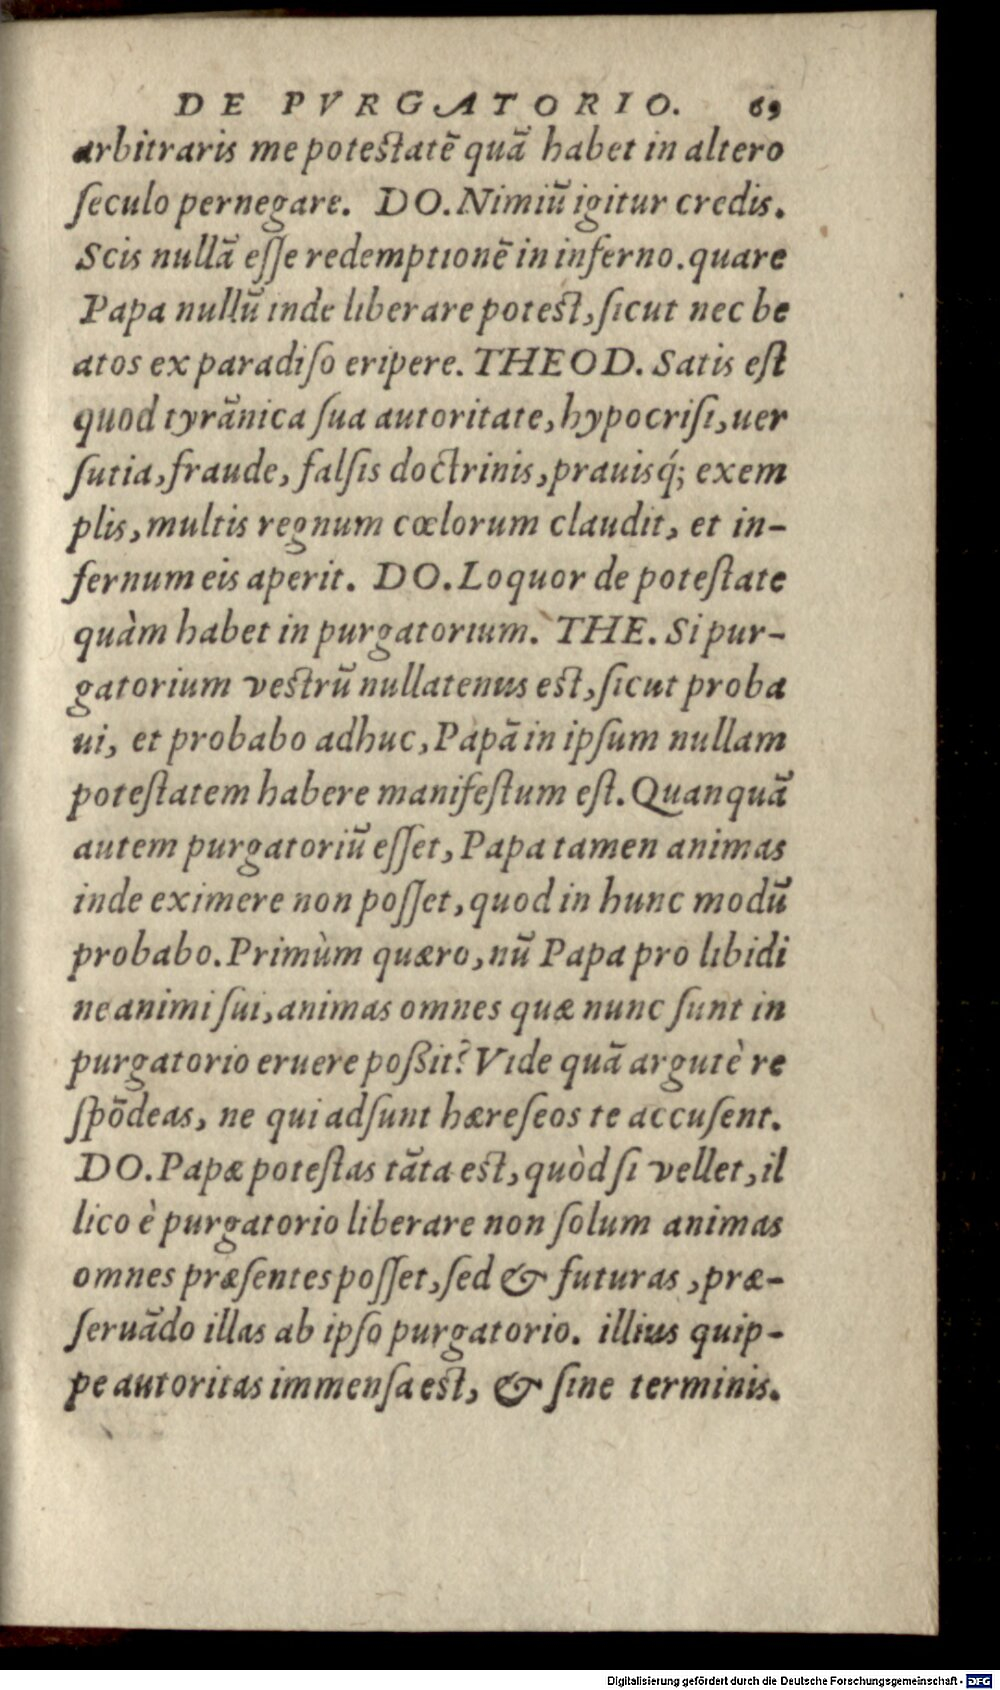 DE PVRGATORIO. 69
arbitraris me potestatē quā habet in altero
ſeculo pernegare. DO. Nimiū igitur credis.
Scis nullā eſſe redemptionē in inferno. quare
Papa nullū inde liberare potest, ſicut nec be
atos ex paradiſo eripere. THEOD. Satis eſt
quod tyrānica ſua autoritate, hypocriſi, uer
ſutia, fraude, falſis doctrinis, prauisq́; exem
plis, multis regnum cœlorum claudit, et in-
fernum eis aperit. DO. Loquor de poteſtate
quàm habet in purgatorium. THE. Si pur-
gatorium vestrū nullatenus est, ſicut proba
ui, et probabo adhuc, Papā in ipſum nullam
poteſtatem habere manifeſtum eſt. Quanquā
autem purgatoriū eſſet, Papa tamen animas
inde eximere non poſſet, quod in hunc modū
probabo. Primùm quæro, nū Papa pro libidi
ne animi ſui, animas omnes quæ nunc ſunt in
purgatorio eruere poßit? Vide quā argutè re
ſpōdeas, ne qui adſunt hæreſeos te accuſent.
DO. Papæ poteſtas tāta est, quòd ſi vellet, il
lico è purgatorio liberare non ſolum animas
omnes præſentes poſſet, ſed & futuras, præ-
ſeruādo illas ab ipſo purgatorio. illius quip-
pe autoritas immenſa est, & ſine terminis.
Digitalisierung gefördert durch die Deutsche Forschungsgemeinschaft - DFG